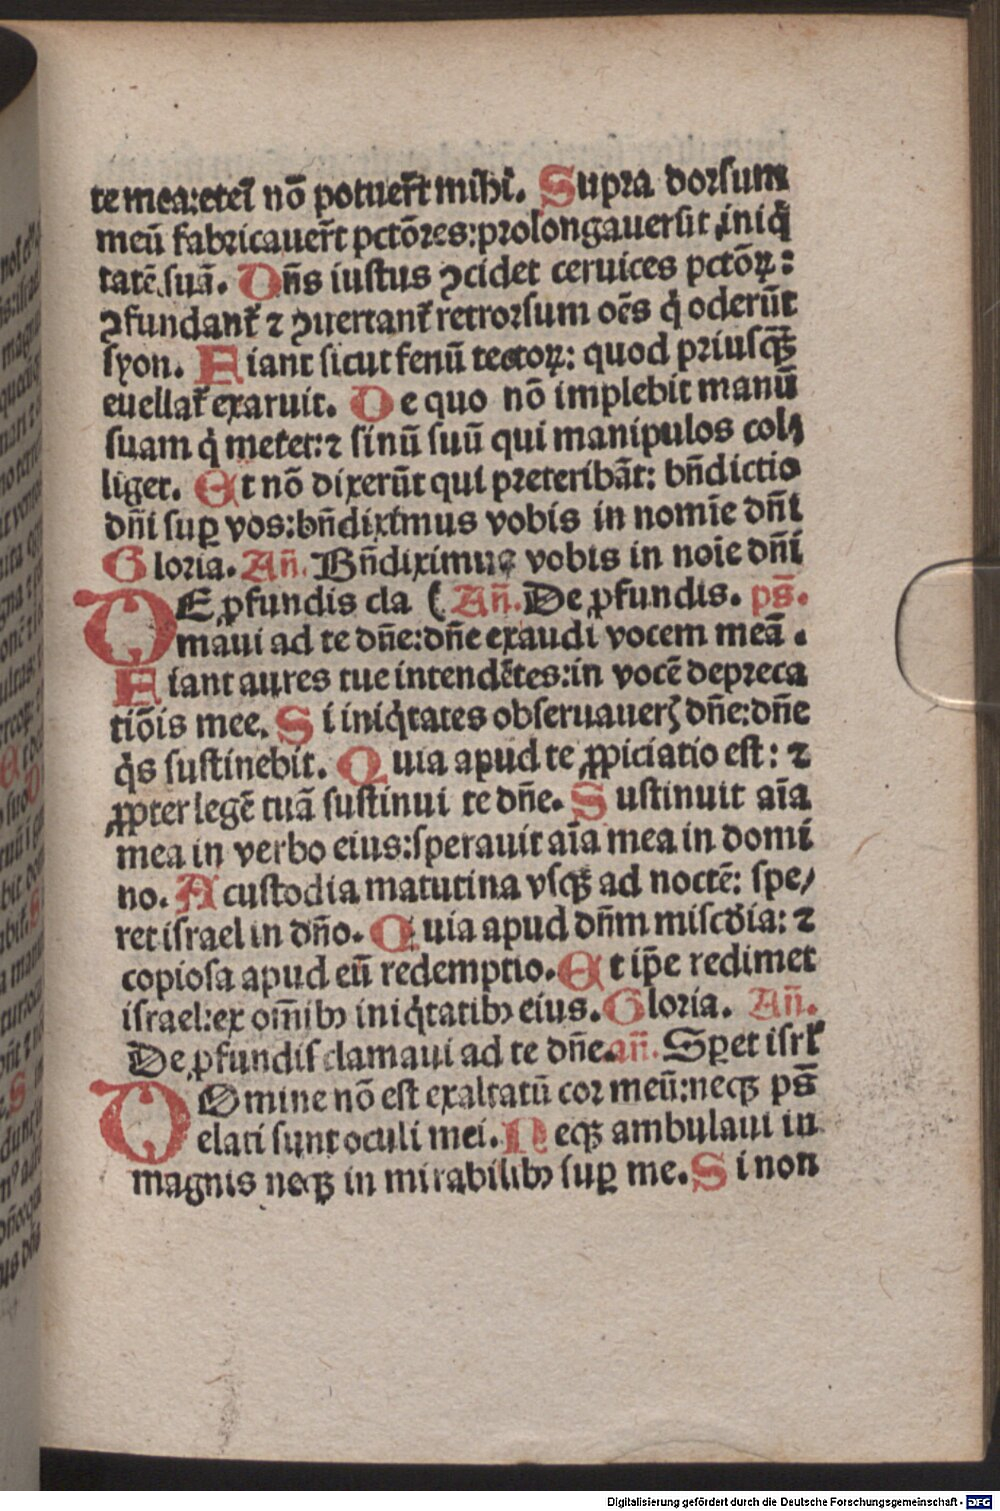 te mea:eteī nō potuer̄t mihi. Supra dorsum
meū fabricauer̄t pctōres:prolongauerūt iniq̇
tatē suā. Dn̄s iustus ꝯcidet ceruices pctōꝝ:
ꝯfundant᷑ ⁊ ꝯuertant᷑ retrorsum oēs q̇ oderūt
syon. Fiant sicut fenū tectoꝝ: quod priusq̄ꝫ
euellat᷑ exaruit. De quo nō implebit manū
suam q̇ metet:⁊ sinū suū qui manipulos col⸗
liget. Et nō dixerūt qui preteribāt: bn̄dictio
dn̄i suꝑ vos:bn̄diximus vobis in nomīe dn̄i
Gloria. An̄. Bn̄diximus vobis in noīe dn̄i
DE ꝓfundis cla ( An̄. De ꝓfundis. ps̄.
maui ad te dn̄e:dn̄e exaudi vocem meā.
Fiant aures tue intendētes:in vocē depreca
tiōis mee. Si iniq̇tates obseruauerꝭ dn̄e:dn̄e
q̇s sustinebit. Quia apud te ꝓpiciatio est: ⁊
ꝓpter legē tuā sustinui te dn̄e. Sustinuit aīa
mea in verbo eius:sperauit aīa mea in domi
no. A custodia matutina vsqꝫ ad noctē: spe/
ret israel in dn̄o. Quia apud dn̄m misc̄dia: ⁊
copiosa apud eū redemptio. Et ip̄e redimet
israel:ex om̄ibꝰ iniq̇tatibꝰ eius. Gloria. An̄.
De ꝓfundis clamaui ad te dn̄e. an̄. Sꝑet isrl᷑
DOmine nō est exaltatū cor meū:neqꝫ ps̄
elati sunt oculi mei. Neqꝫ ambulaui in
magnis neqꝫ in mirabilibꝰ suꝑ me. Si non
Digitalisierung gefördert durch die Deutsche Forschungsgemeinschaft - DFG